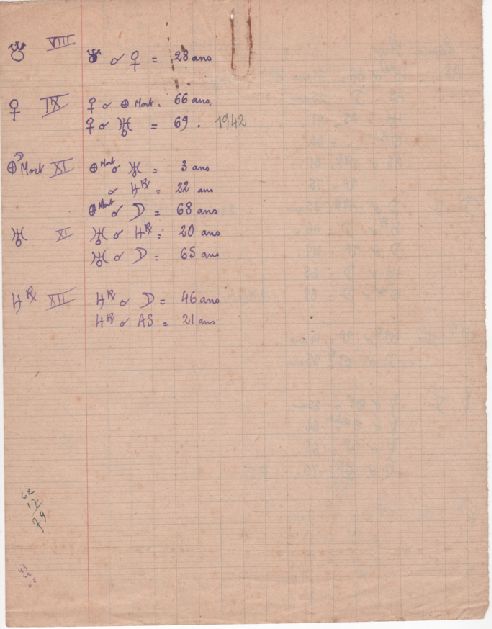 ☿ VIII ☿ ☌ ♀ = 28 ans
♀ IX ♀ ☌ ⊕ Mort = 66 ans.
♀ ☌ ♅ = 69. 1942
⊕ Mort XI ⊕ Mort ☌ ♅ = 3 ans
☌ ♃ ℞ = 22 ans
⊕ Mort ☌ ☽ = 68 ans
♅ XI ♅ ☌ ♃ ℞ = 20 ans
♅ ☌ ☽ = 65 ans
♃ ℞ XII ♃ ℞ ☌ ☽ = 46 ans
♃ ℞ ☌ AS = 21 ans
62
17
79